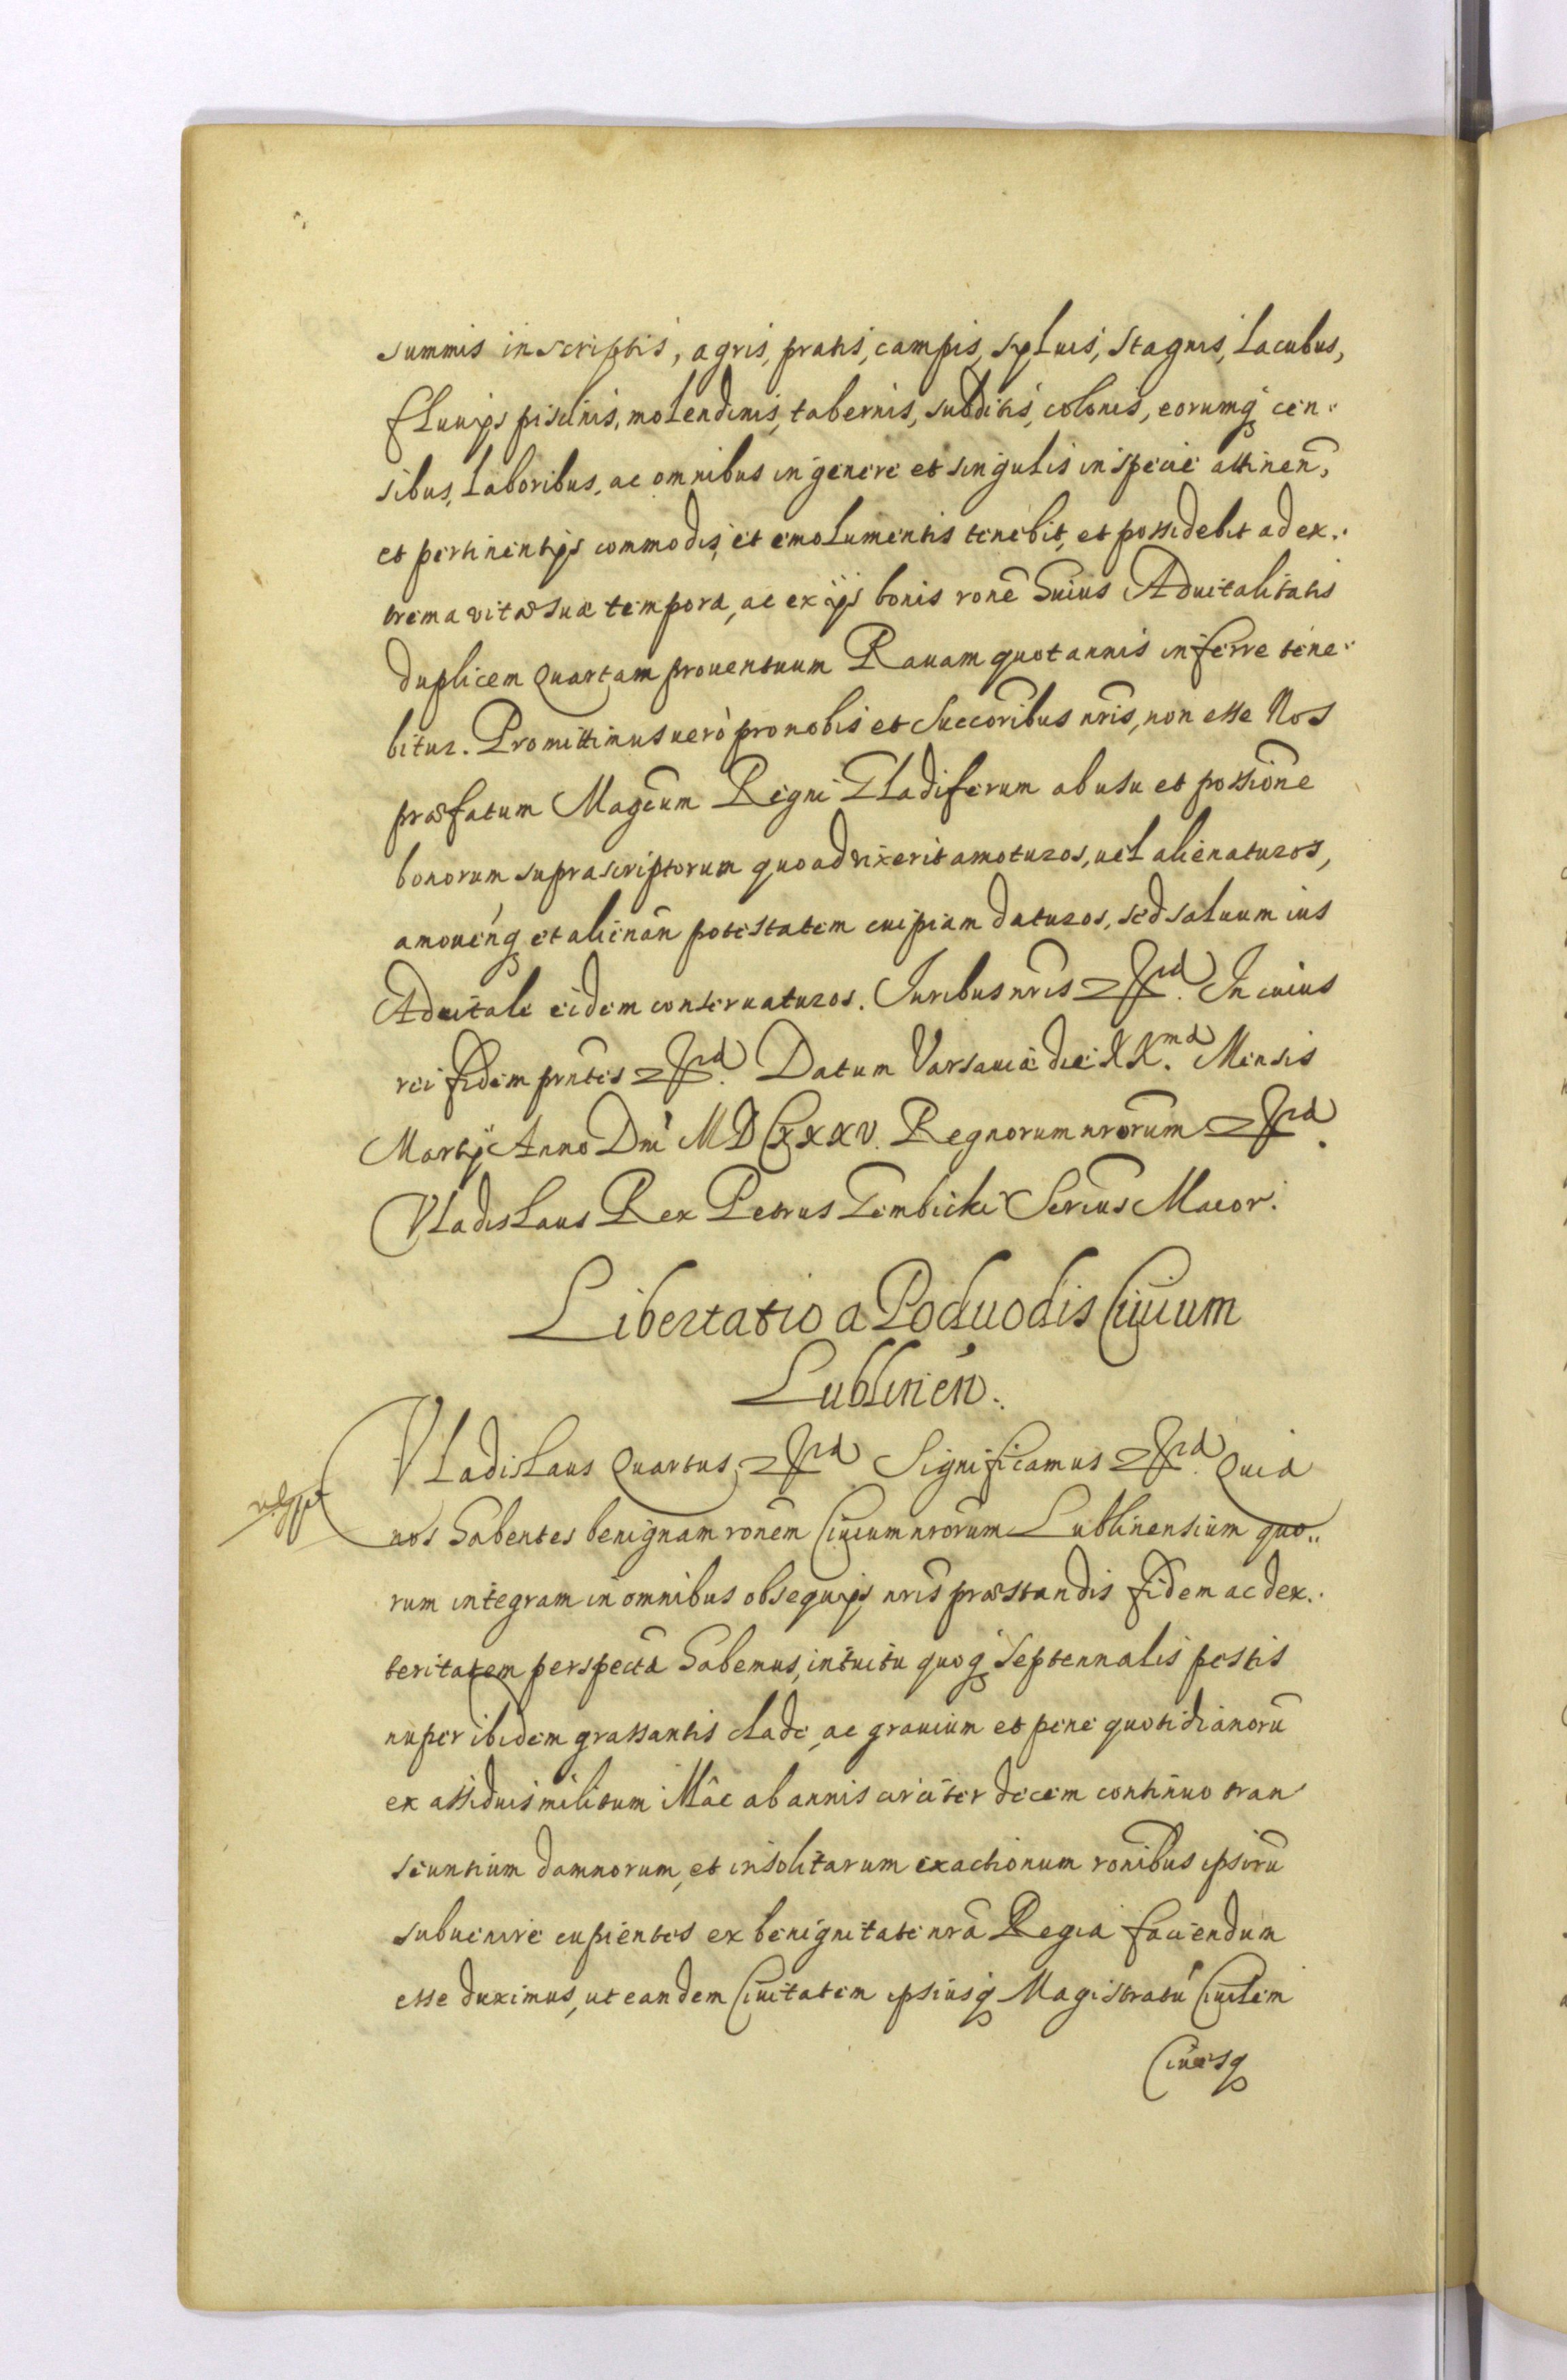 summis inscriptis, agris, pratis, campis, syluis, stagnis, Lacubus,
fluuijs piscinis, molendinis, tabernis, subditis, colonis, eorumq cen-
sibus, Laboribus, ac omnibus in genere et singulis in specie attinen̄,
et pertinentijs commodis, et emolumentis tenebit, et possidebit ad ex-
trema vitæ suæ tempora, ac ex ijs bonis ronē huius Aduitalitatis
duplicem quartam prouentuum Rauam quotannis inferre tene-
bitur. Promittimus uerò pro nobis et Succoribus nris, non esse Nos
præfatum Magcum Regni Gladiferum ab usu et possione
bonorum suprascriptorum quoad vixerit amoturos, uel alienaturos,
amouenq et alienan̄ potestatem cuipiam daturos, sed saluum ius
Aduitale eidem conseruaturos. Iuribus nris
In cuius
rei fidem prntes
Datum Varsauiæ die XX.ma Mensis
Martij Anno Dni MDCXXXV. Regnorum nrorum
Vladislaus Rex Petrus Gembicki Serius Maior.
Libertatio a Poduodis Ciuium
Lublinen̄.
Vladislaus Quartus
Significamus
Quia
nos habentes benignam ronem Ciuium nrorum Lublinensium quo-
rum integram in omnibus obsequijs nris præstandis fidem ac dex-
teritatem perspectā habemus, intuitu quoq septennalis pestis
nuper ibidem grassantis clade, ac grauium et pene quotidianorū
ex assiduis militum illâc ab annis circiter decem continuo tran
seuntium damnorum, et insolitarum exactionum ronibus ipsorū
subuenire cupientes ex benignitate nrā Regia faciendum
esse duximus, ut eandem Ciuitatem ipsiusq Magistratū Ciuilem
Ciuesq